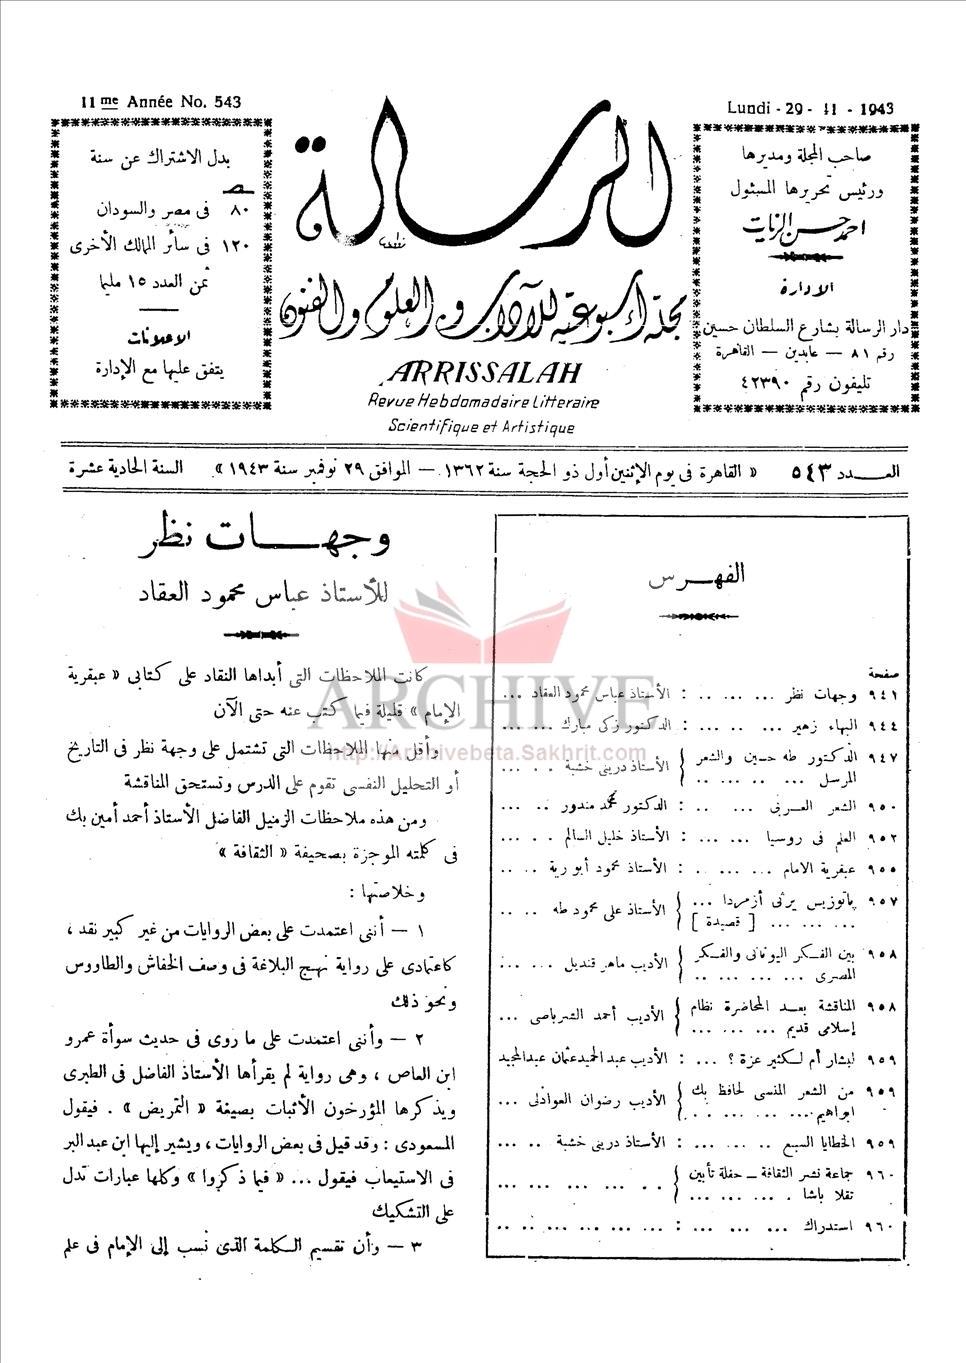 11me Année No. 543
Lundi - 29 - 11 - 1943
صاحب المجلة ومديرها
ورئيس تحريرها المسئول
احمد حسن الزيات
الادارة
دار الرسالة بشارع السلطان حسين
رقم ٨١ — عابدين — القاهرة
تليفون رقم ٤٢٣٩٠
الرسالة
مجلة أسبوعية للآداب والعلوم والفنون
ARRISSALAH
Revue Hebdomadaire Litteraire
Scientifique et Artistique
بدل الاشتراك عن سنة
٨٠ فى مصر والسودان
١٢٠ فى سائر الممالك الأخرى
ثمن العدد ١٥ مليما
الاعلانات
يتفق عليها مع الإدارة
العـــدد ٥٤٣ « القاهرة فى يوم الإثنين أول ذو الحجة سنة ١٣٦٢ — الموافق ٢٩ نوفمبر سنة ١٩٤٣ » السنة الحادية عشرة
الفهـرس
صفحة
٩٤١ وجهات نظر ... ... .. : الأستاذ عباس محمود العقاد ...
٩٤٤ البهاء زهير ... ... .. : الدكتور زكى مبارك ... ...
٩٤٧ الدكتور طه حسين والشعر
المرسل ... ... ... ..
} الأستاذ درينى خشبة . .. ...
٩٥٠ الشعر العربى ... .. .. : الدكتور محمد مندور .. ...
٩٥٢ العلم فى روسيا ... ... . : الأستاذ خليل السالم .. ...
٩٥٥ عبقرية الامام ... ... .. : الأستاذ محمود أبو رية .. ..
٩٥٧ پاتوزيس يرثى أزمردا ...
... ... ... [ قصيدة ]
} الأستاذ على محمود طه .. ..
٩٥٨ بين الفكر اليونانى والفكر
المصرى ... ... ... ..
} الأديب ماهر قنديل .. ...
٩٥٨ المناقشة بعد المحاضرة نظام
إسلامى قديم ... ... ...
} الأديب أحمد الشرباصى ...
٩٥٩ لبشار أم لكثير عزة ؟ ... : الأديب عبد الحميد عثمان عبد المجيد
٩٥٩ من الشعر المنسى لحافظ بك
ابراهيم ... ... .. ...
} الأديب رضوان العوادلى ...
٩٥٩ الخطايا السبع .. ... .. : الأستاذ درينى خشبة .. ...
٩٦٠ جماعة نشر الثقافة ـ حفلة تأبين
تقلا باشا . ... ... ..
} ... ... ... ... . .. .
٩٦٠ استدراك ... ... ... : ... ... ... ... ... .. ..
وجهـــات نظر
للأستاذ عباس محمود العقاد
كانت الملاحظات التى أبداها النقاد على كتابى « عبقرية
الإمام » قليلة فيما كتب عنه حتى الآن
وأقل منها الملاحظات التى تشتمل على وجهة نظر فى التاريخ
أو التحليل النفسى تقوم على الدرس وتستحق المناقشة
ومن هذه ملاحظات الزميل الفاضل الأستاذ أحمد أمين بك
فى كلمته الموجزة بصحيفة « الثقافة »
وخلاصتها :
١ — أننى اعتمدت على بعض الروايات من غير كبير نقد ،
كاعتمادى على رواية نهج البلاغة فى وصف الخفاش والطاووس
ونحو ذلك
٢ — وأننى اعتمدت على ما روى فى حديث سوأة عمرو
ابن العاص ، وهى رواية لم يقرأها الأستاذ الفاضل فى الطبرى
ويذكرها المؤرخون الأثبات بصيغة « التمريض » . فيقول
المسعودى : وقد قيل فى بعض الروايات ، ويشير إليها ابن عبد البر
فى الاستيعاب فيقول ... « فيما ذكروا » وكلها عبارات تدل
على التشكيك
٣ — وأن تقسيم الكلمة الذى نسب إلى الإمام فى علم
ARCHIVE
http://Archivebeta.Sakhrit.com